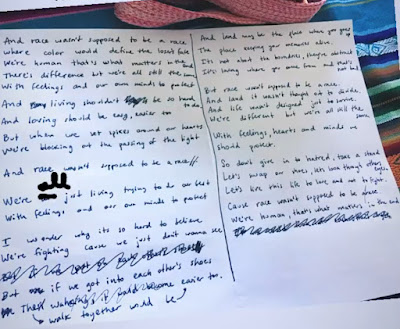 And race wasn't supposed to be a race
where color would define the face
We're human that's what matters in the end
There's difference but we're all still the same
With feelings and our own minds to protect
And living shouldn't be so hard
And loving should be easy, easier to do
But when we set spikes around our hearts
We're blocking at the passing of the light
And race wasn't supposed to be a race
We're all just living trying to do our best
With feelings and our own minds to protect
I wonder why its so hard to believe
We're fighting cause we just don't wanna see
But if we got into each other's shoes
Then walking would become easier too.
walk together would be
And land may be the place where you grew
The place keeping your memories alive.
It's not about the boundries, they're abstract
It's loving where you come from and that's
not bad
But race wasn't supposed to be a race.
And land it wasn't thought out to divide.
And life wasn't designed just to survive
We're different but we're all still the
same
With feelings, hearts and minds we
should protect.
So don't give in to hatred, take a stand
Let's swap our shoes, let's look through others
eyes,
Let's live this life to love and not to fight.
Cause race wasn't supposed to be a race
We're human, that's what matters in the end